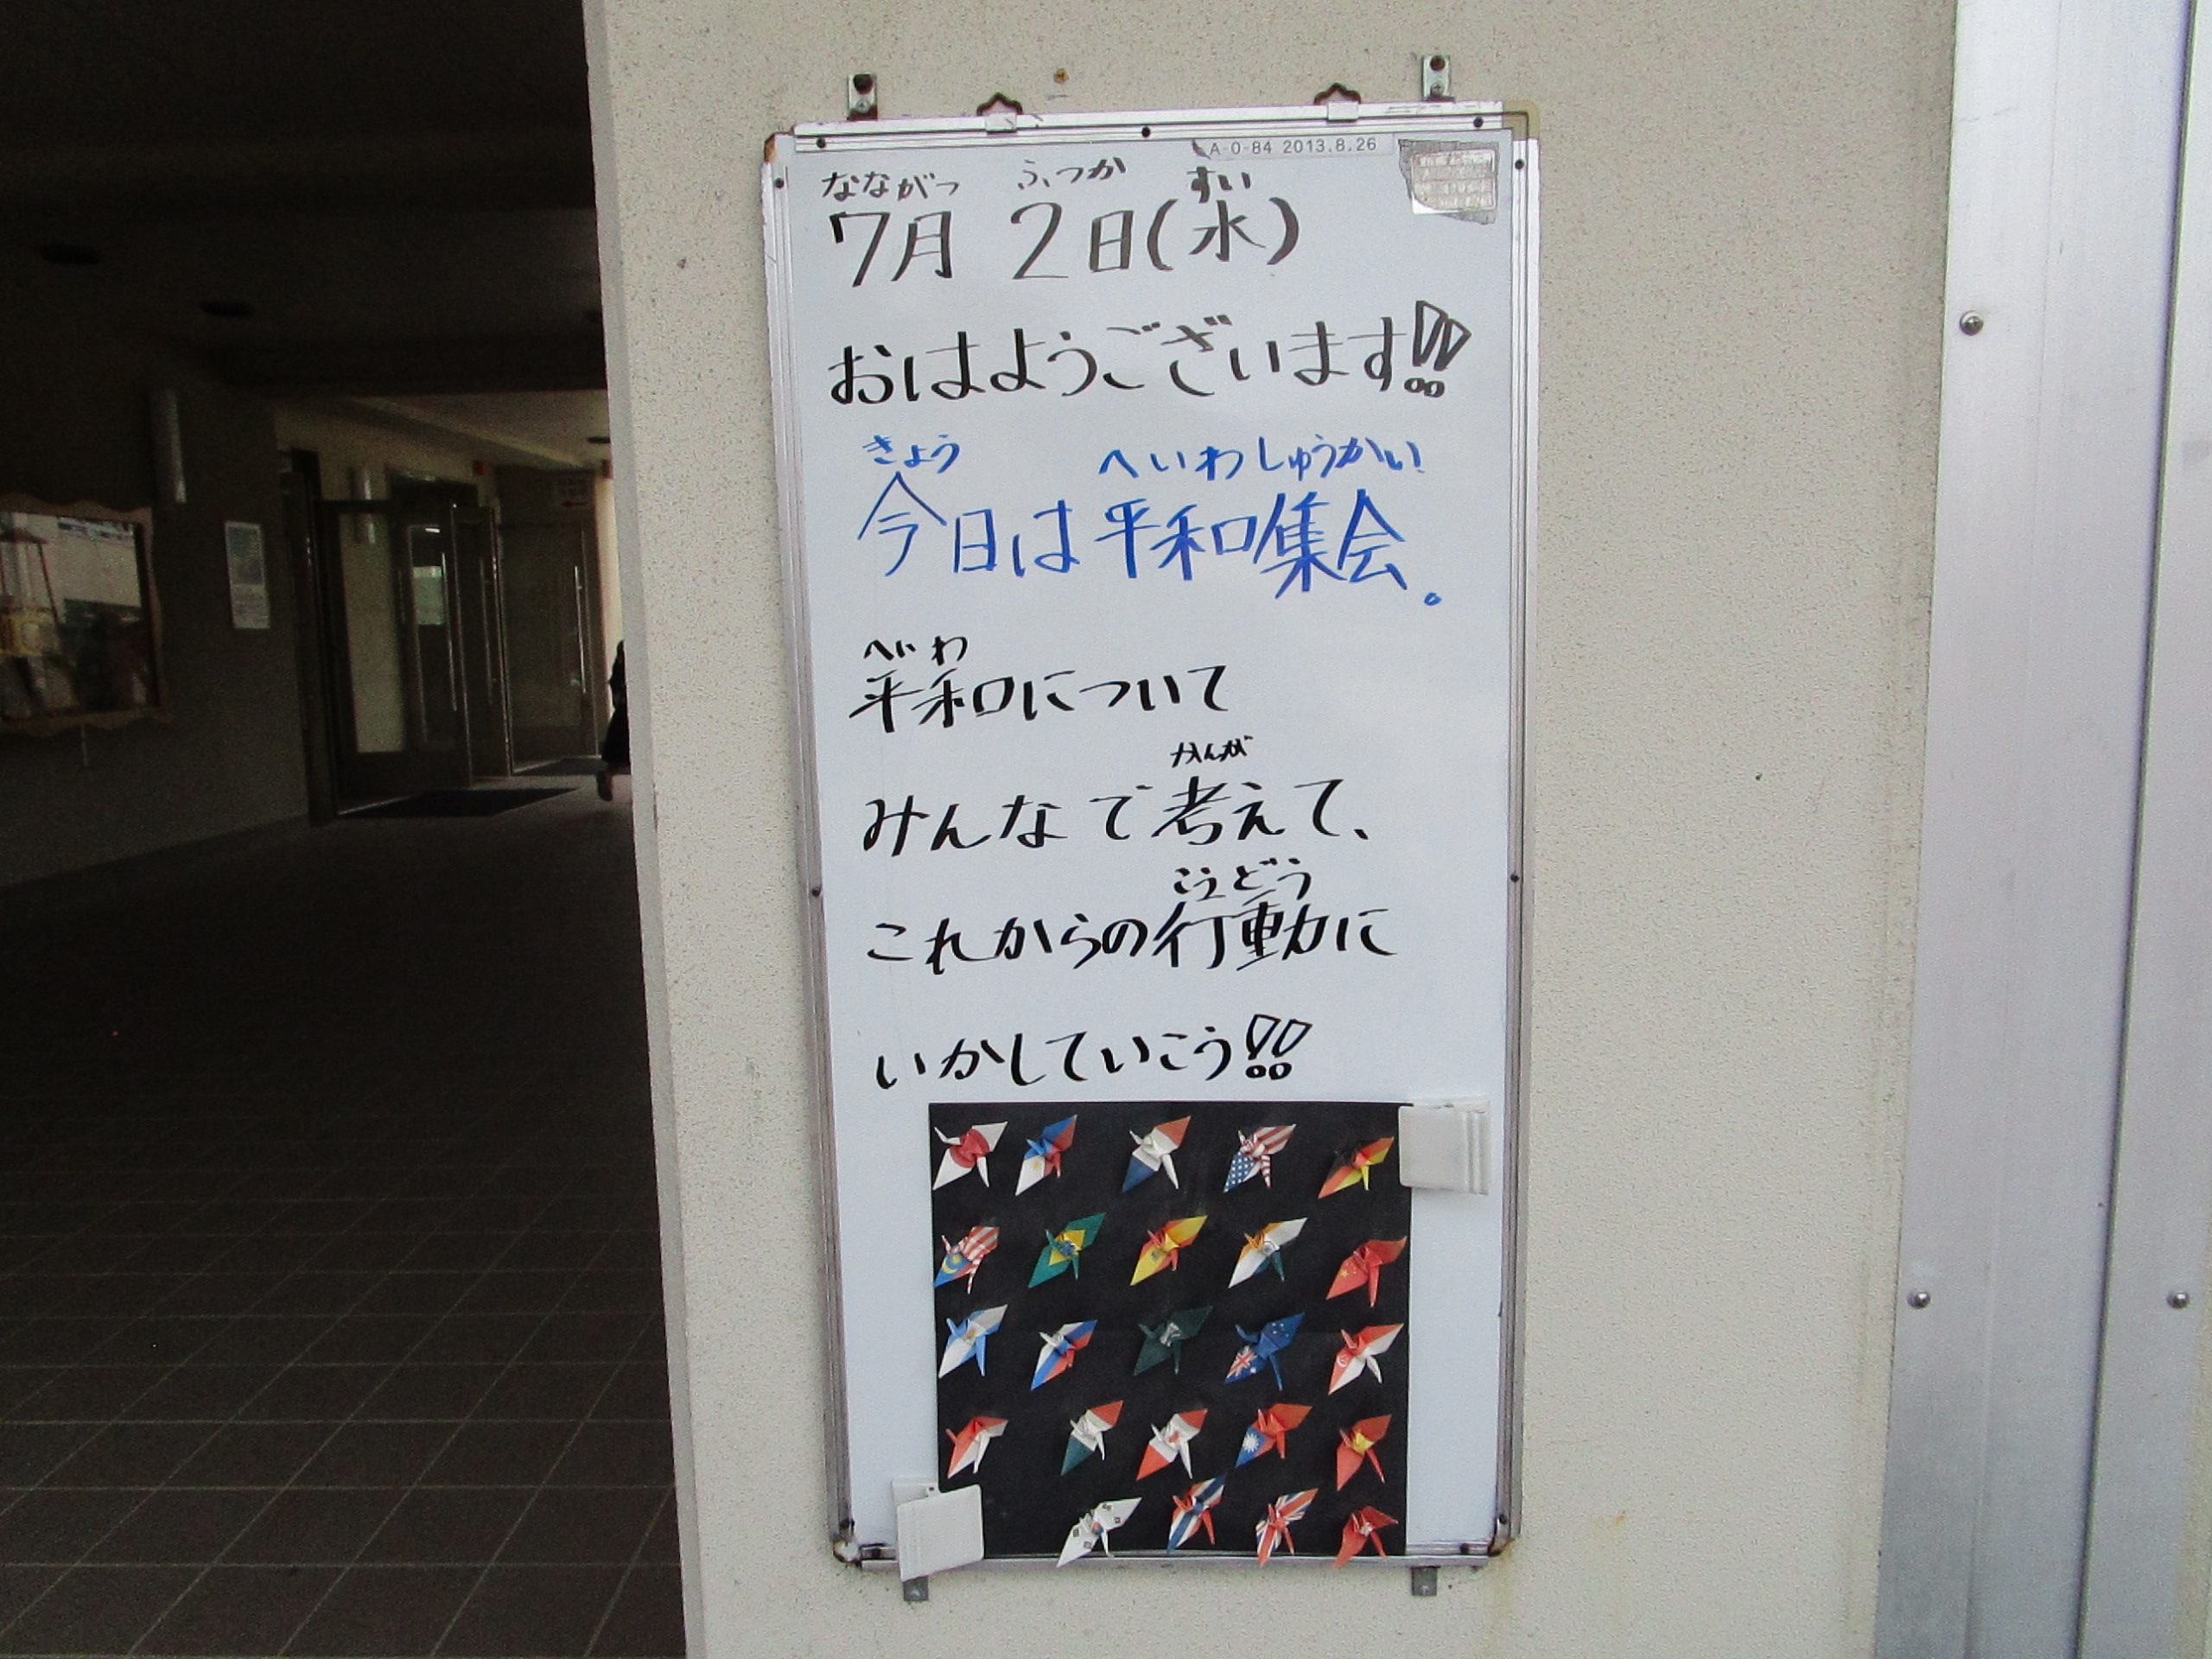 A-0-84 2013.8.26
なながつ ふつか すい
7月 2日(水)
おはようございます!!
きょう へいわしゅうかい
今日は平和集会。
へいわ
平和について
かんが
みんなで考えて、
こうどう
これからの行動に
いかしていこう!!